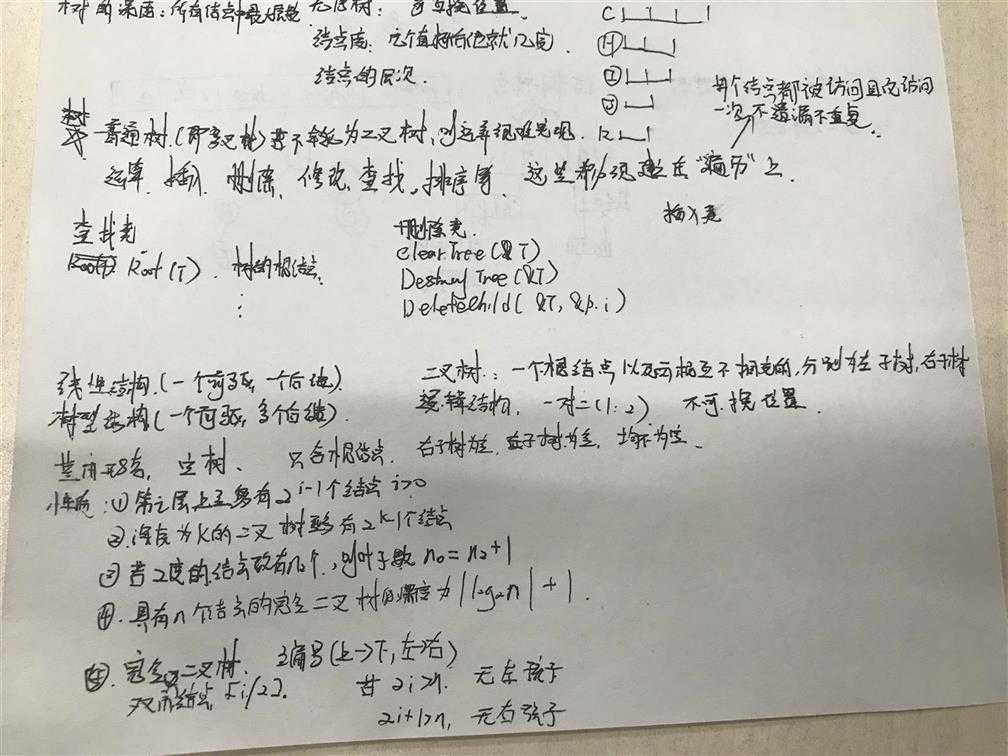 树的深度：所有结点中最大层数 无序树：可互换位置。
C
结点度：几个直接后继就几度．
H
结点的层次．
I
J
每个结点都被访问且仅访问
一次，不遗漏不重复．
K
树 普通树（即多叉树）若不转化为二叉树，则运算很难实现
运算．插入 删除．修改．查找．排序等 这些都必须建立在"遍历"上．
查找类
删除类．
插入类
Root(T)．树的根结点．
ClearTree(&T)
DestroyTree(&T)
⋮
DeleteChild(&T, &p. i)
线性结构．(一个前驱，一个后继)
二叉树：一个根结点以及两棵互不相交的，分别为左子树，右子树
树型结构(一个前驱，多个后继)
逻辑结构，一对二(1:2) 不可换位置
基本形态．空树、只含根结点．右子树为空．左子树为空，均不为空．
性质：①第i层上至多有2^i-1个结点 i>0
②．深度为K的二叉树至多有2^k-1个结点
③若2度的结点数有n2个，则叶子数 n0=n2+1
④．具有n个结点的完全二叉树的深度为|log2n|+1．
⑤．完全二叉树．编号(上→下，左→右)
双亲结点 ⌈i/2⌉．若 2i>n．无左孩子
2i+1>n，无右孩子